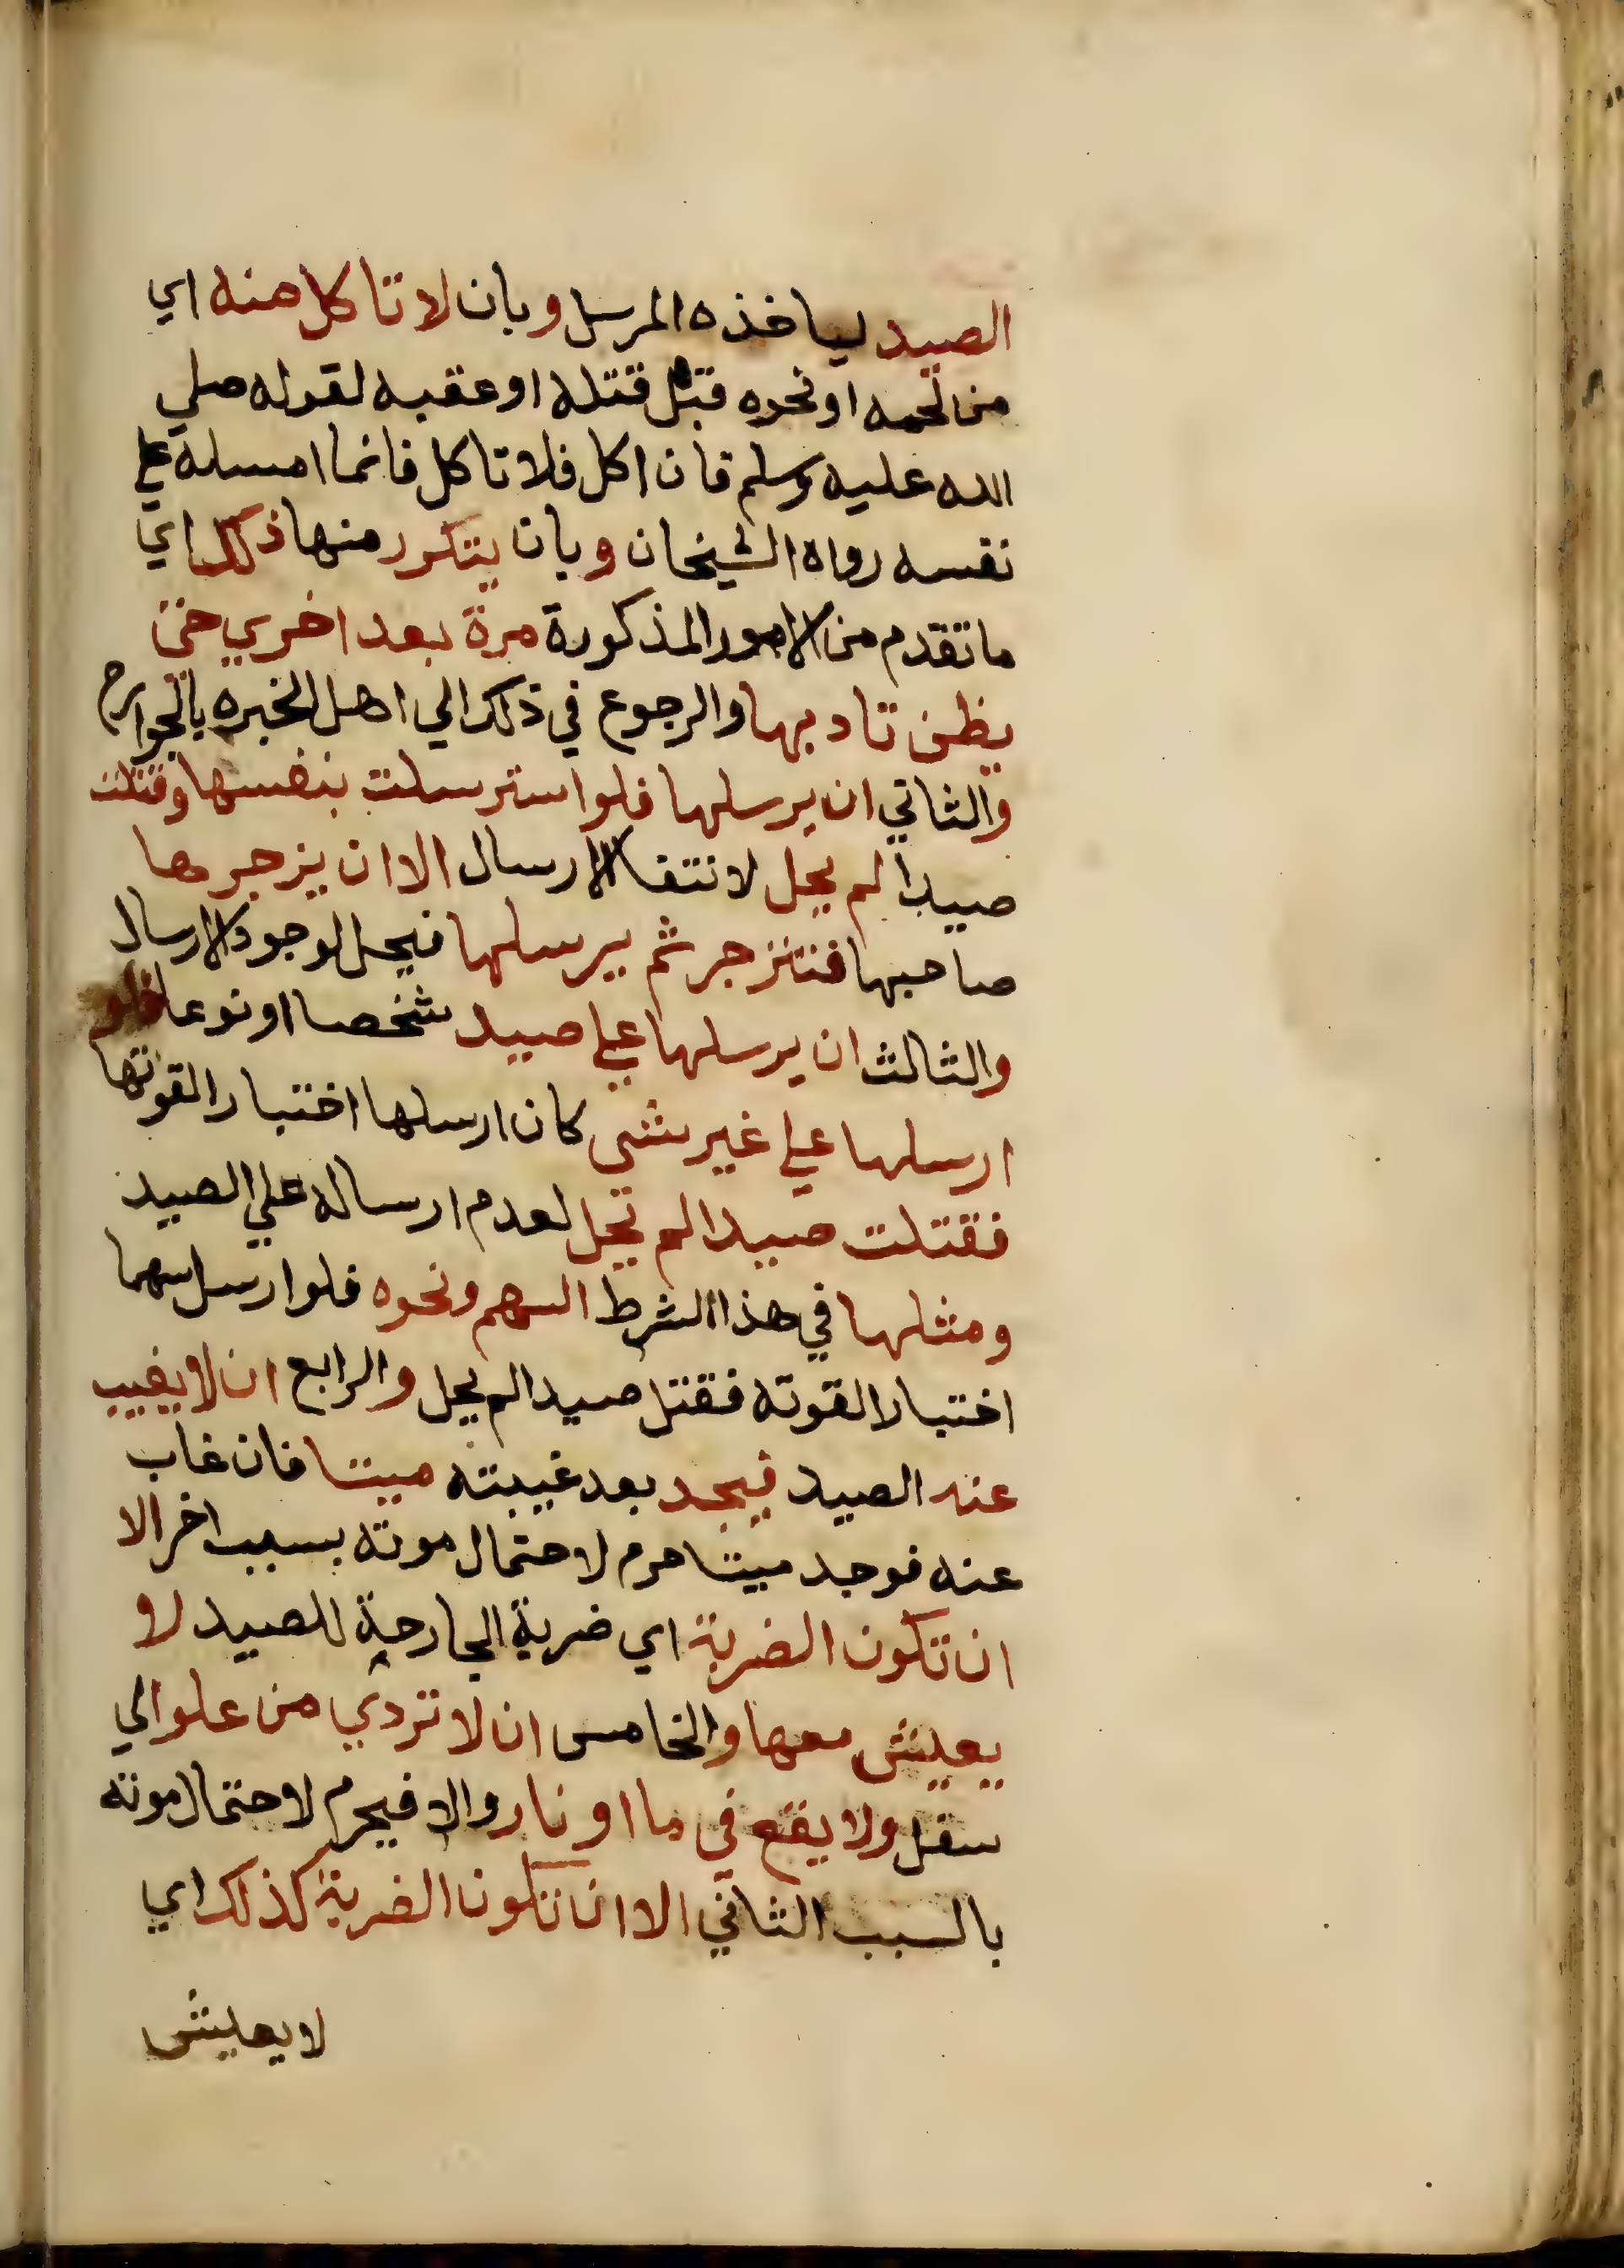 الصيد لياخذه المرسل وبان لا تاكل منه اي
من لحمه او نحوه قبل قتله او عقبه لقوله صلي
الله عليه وسلم فان اكل فلا تاكل فانما امسك علي
نفسه رواه الشيخان وبان يتكرر منها ذلك اي
ما تقدم من الامور المذكورة مرة بعد اخري حتي
يظن تاديبها والرجوع في ذلك الي اهل الخبره بالجوارح
والثاني ان يرسلها فلو استرسلت بنفسها وقتلت
صيدا لم يحل لانتفا الارسال الا ان يزجرها
صاحبها فتنزجر ثم يرسلها فيحل لوجود الارسال
والثالث ان يرسلها علي صيد شخصا او نوعا فلو
ارسلها علي غير شي كان ارسلها اختبارا لقوتها
فقتلت صيدا لم تحل لعدم ارساله علي الصيد
ومثلها في هذا الشرط السهم ونحوه فلو ارسل سهما
اختبارا لقوته فقتل صيدا لم يحل والرابع ان لا يغيب
عنه الصيد فيجد بعد غيبته ميتا فان غاب
عنه فوجد ميتا حرم لاحتمال موته بسبب اخر الا
ان تكون الضربة اي ضربة الجارحة للصيد لا
يعيش معها والخامس ان لا تردي من علو الي
سفل ولا يقع في ما او نار والا فيحرم لاحتمال موته
بالسبب الثاني الا ان تكون الضربة كذلك اي
لا يعيش